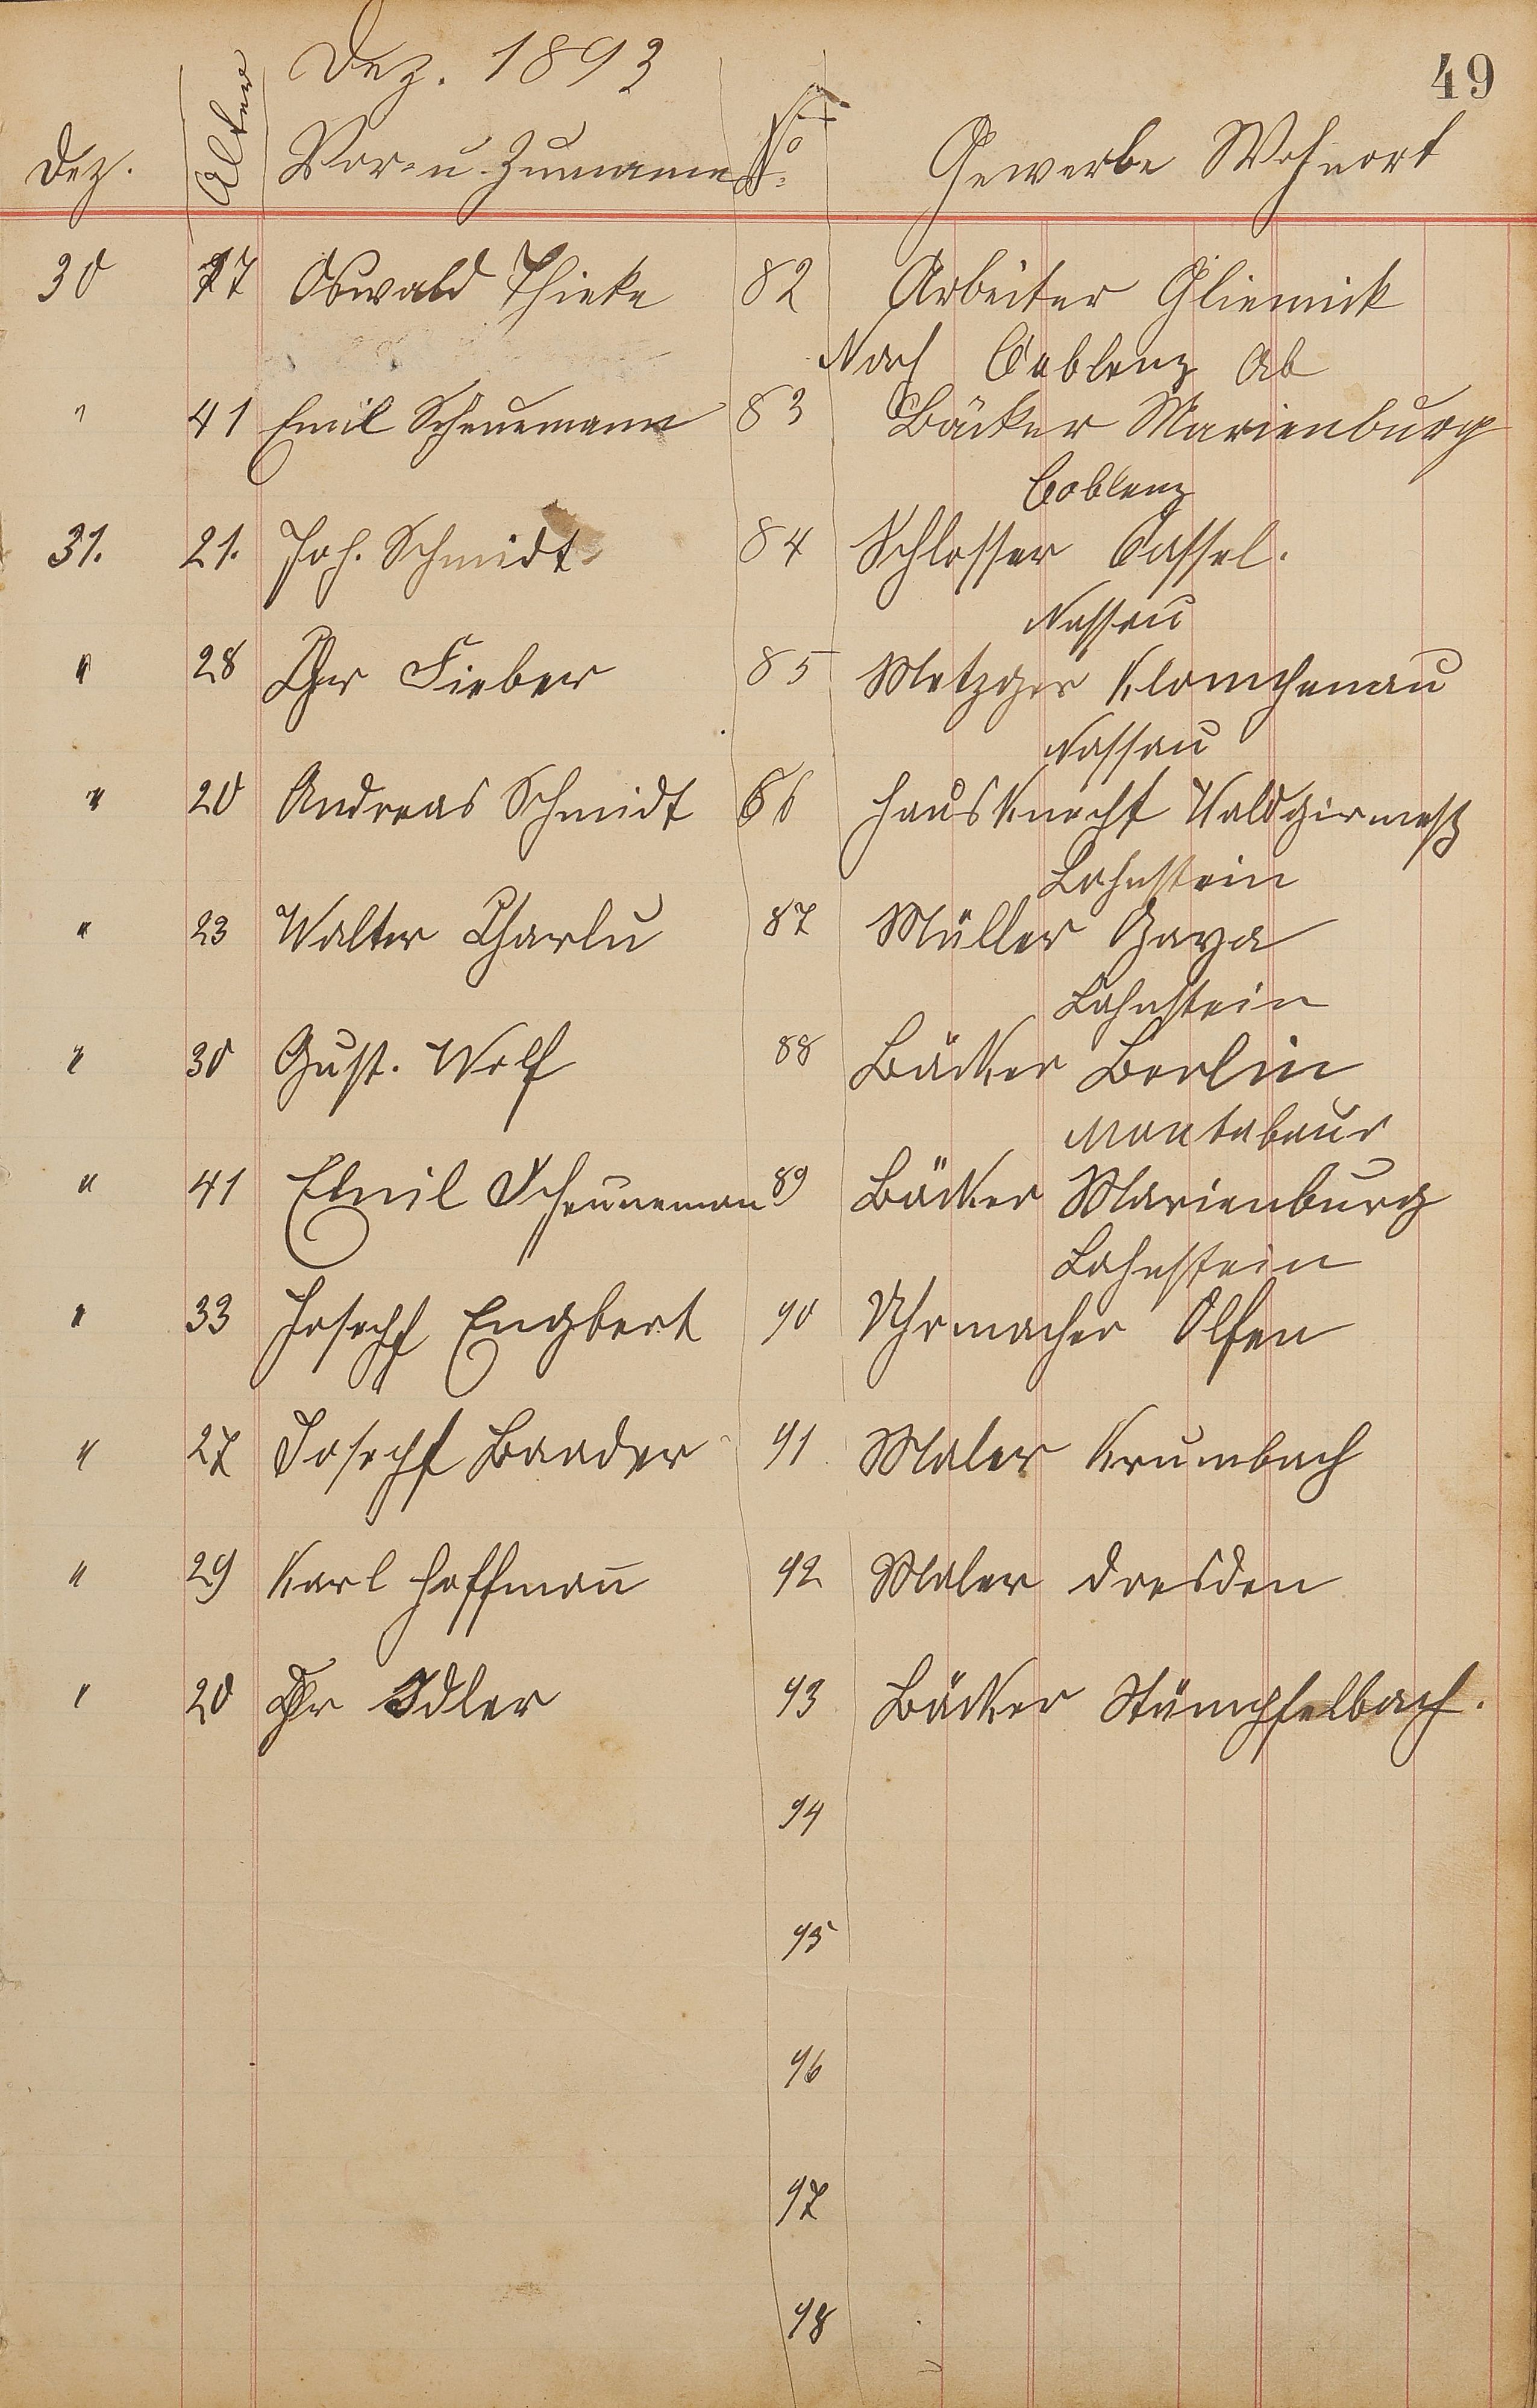 Dez. 1893
49
Dez. Alter Vor- u. Zuname No Gewerbe Wohnort
30 77 Oswald Thieke 82 Arbeiter Glienick
Nach Coblenz ab
" 41 Emil Scheunemann 83 Bäcker Marienburg
Coblenz
31. 21. Joh. Schmidt 84 Schlosser Cassel.
Nassau
" 28 Chr Fieber 85 Metzger
Nassau
" 20 Andreas Schmidt 86 Hausknecht Waldgirmeß
Lahnstein
" 23 Walter 87 Müller Gaya
Lahnstein
" 30 Gust. Wolf 88 Bäcker Berlin
Montabaur
" 41 Emil Scheuneman 89 Bäcker Marienburg
Lahnstein
" 33 Joseph Engbert 90 Uhrmacher Olfen
" 27 Joseph Baader 91 Maler Krumbach
" 29 Karl Hoffman̄ 92 Maler Dresden
" 20 Chr Idler 93 Bäcker Stümpfelbach.
94
95
96
97
98